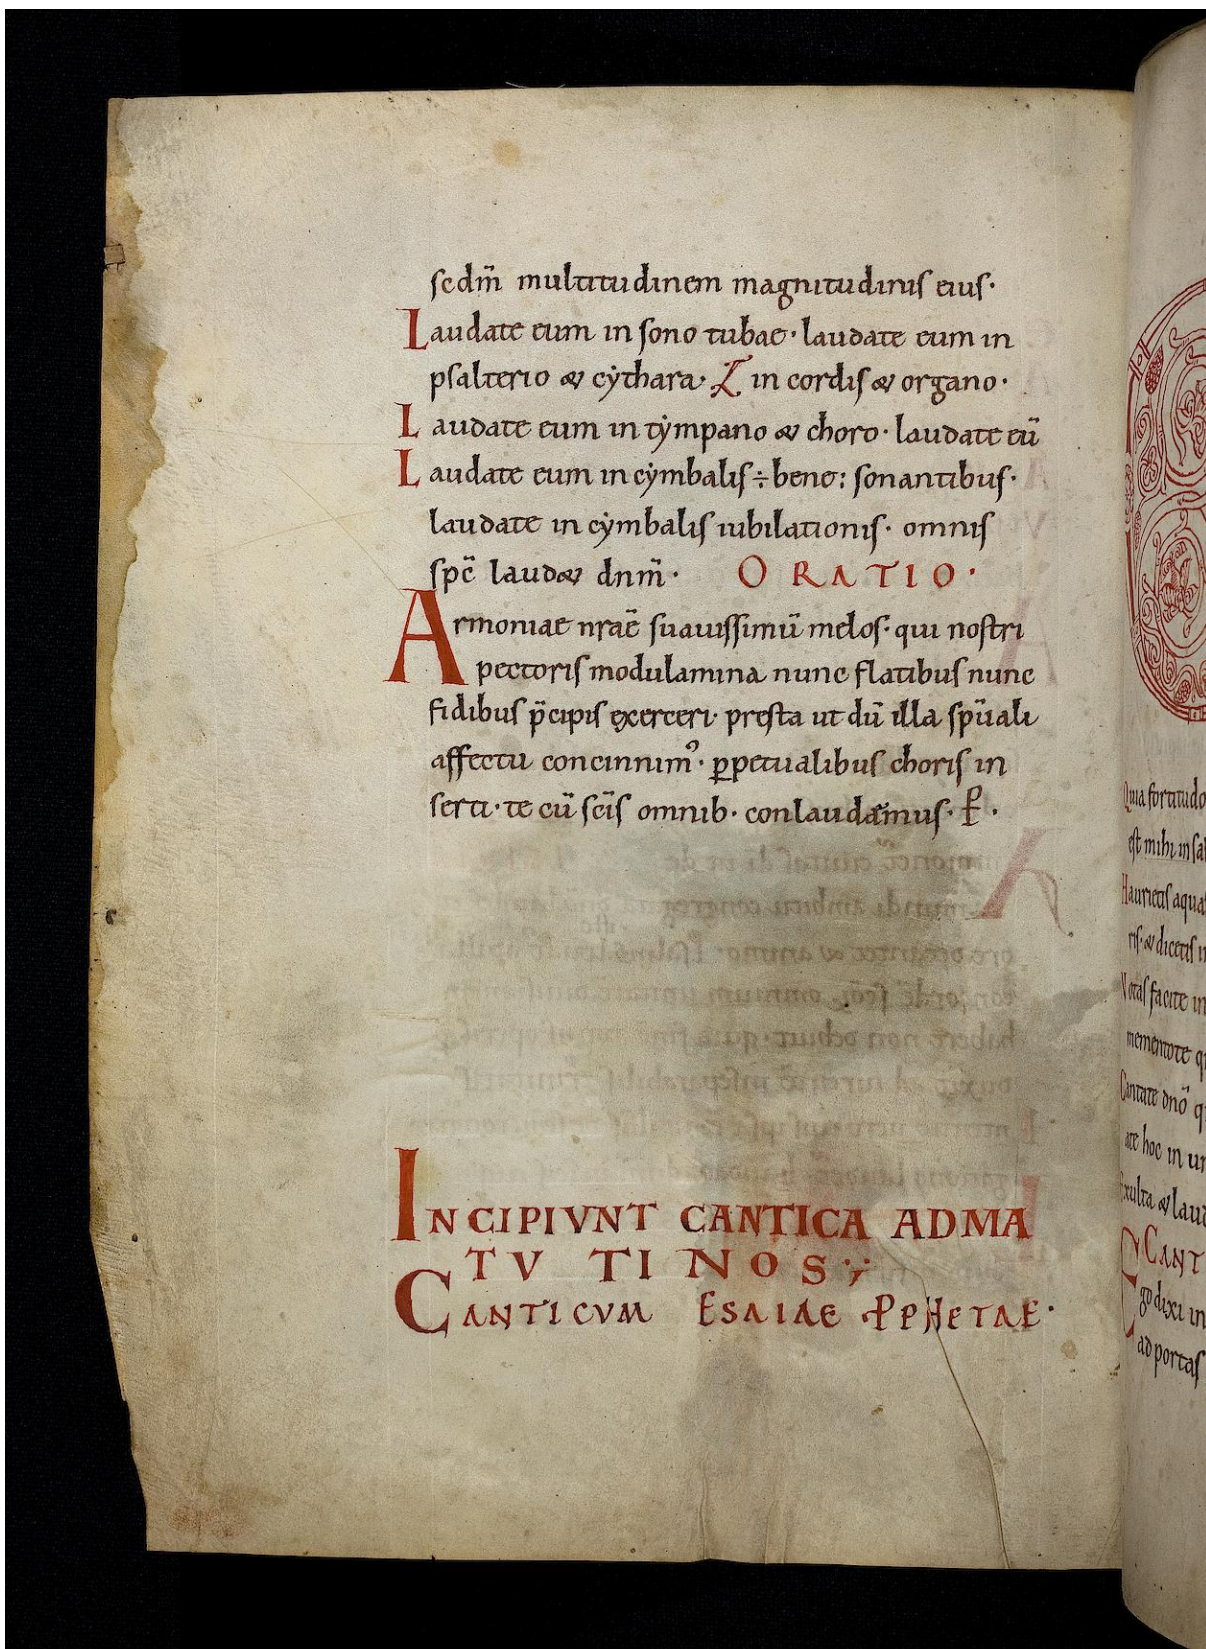 scdm̄ multitudinem magnitudinis eius·
Laudate eum in sono tubae· laudate eum in
psalterio & cẏthara· in cordis & organo·
Laudate eum in tẏmpano & choro· laudate eū
Laudate eum in cẏmbalis ÷ bene: sonantibus·
laudate in cẏmbalis iubilationis· omnis
spc̄ laud& dnm̄· ORATIO·
Armoniae nrae̅ suauissimū melos· qui nostri
pectoris modulamina nunc flatibus nunc
fidibus p̄cipis exerceri· presta ut dū illa spūali
affectu concinnim᾽· ꝑpetualibus choris in
serti· te cū sc̄is omnib· conlaudamus· P·
INCIPIVNT CANTICA ADMA
TVTINOS
CANTICVM ESAIAE PPHETAE·
Quia fortitudo
est mihi in sa
Haurietis aqua
ris· & dicetis i
Notas facite in
mementote q
Cantate dnō q
ate hoc in ur
Exulta & lau
CANT
Ego dixi in
ad portas